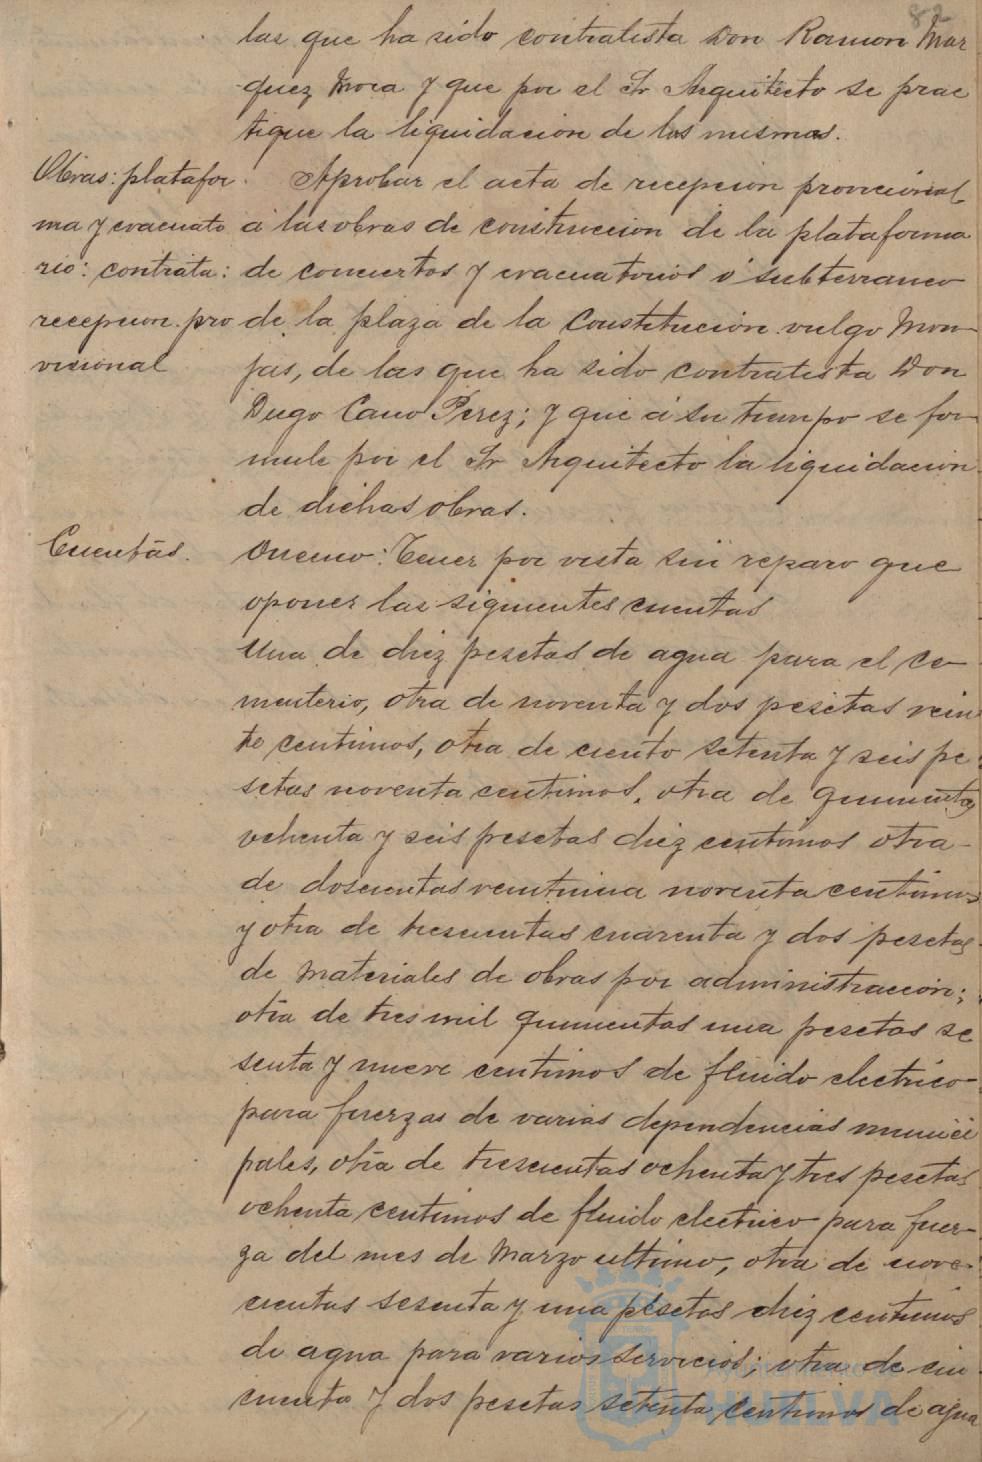 82
las que ha sido contratista Don Ramon Mar
quez Mora y que por el Sr Arquitecto se prac
tique la liquidacion de las mismas.
Obras: platafor
ma y evacuato
rio: contrata:
recepcion pro
visional
Aprobar el acta de recepcion provicional
á las obras de construccion de la plataforma
de conciertos y evacuatorios ó subterraneo
de la plaza de la Constitucion vulgo Mon-
jas, de las que ha sido contratista Don
Diego Cano Perez; y que á su tiempo se for-
mule por el Sr Arquitecto la liquidacion
de dichas obras.
Cuentas.
Onceno: Tener por vista sin reparo que
oponer las siguientes cuentas
Una de diez pesetas de agua para el ce-
menterio, otra de noventa y dos pesetas vein
te centimos, otra de ciento setenta y seis pe
setas noventa centimos, otra de quinientas
ochenta y seis pesetas diez centimos otra-
de doscientas veintiuna noventa centimos
y otra de trescientas cuarenta y dos pesetas
de materiales de obras por administracion;
otra de tres mil quinientas una pesetas se
senta y nueve centimos de fluido electrico-
para fuerzas de varias dependencias munici
pales, otra de trescientas ochenta y tres pesetas
ochenta centimos de fluido electrico para fuer-
za del mes de Marzo ultimo, otra de nove-
cientas sesenta y una pesetas diez centimos
de agua para varios servicios; otra de cin
cuenta y dos pesetas setenta centimos de agua
Ayuntamiento de
HUELVA